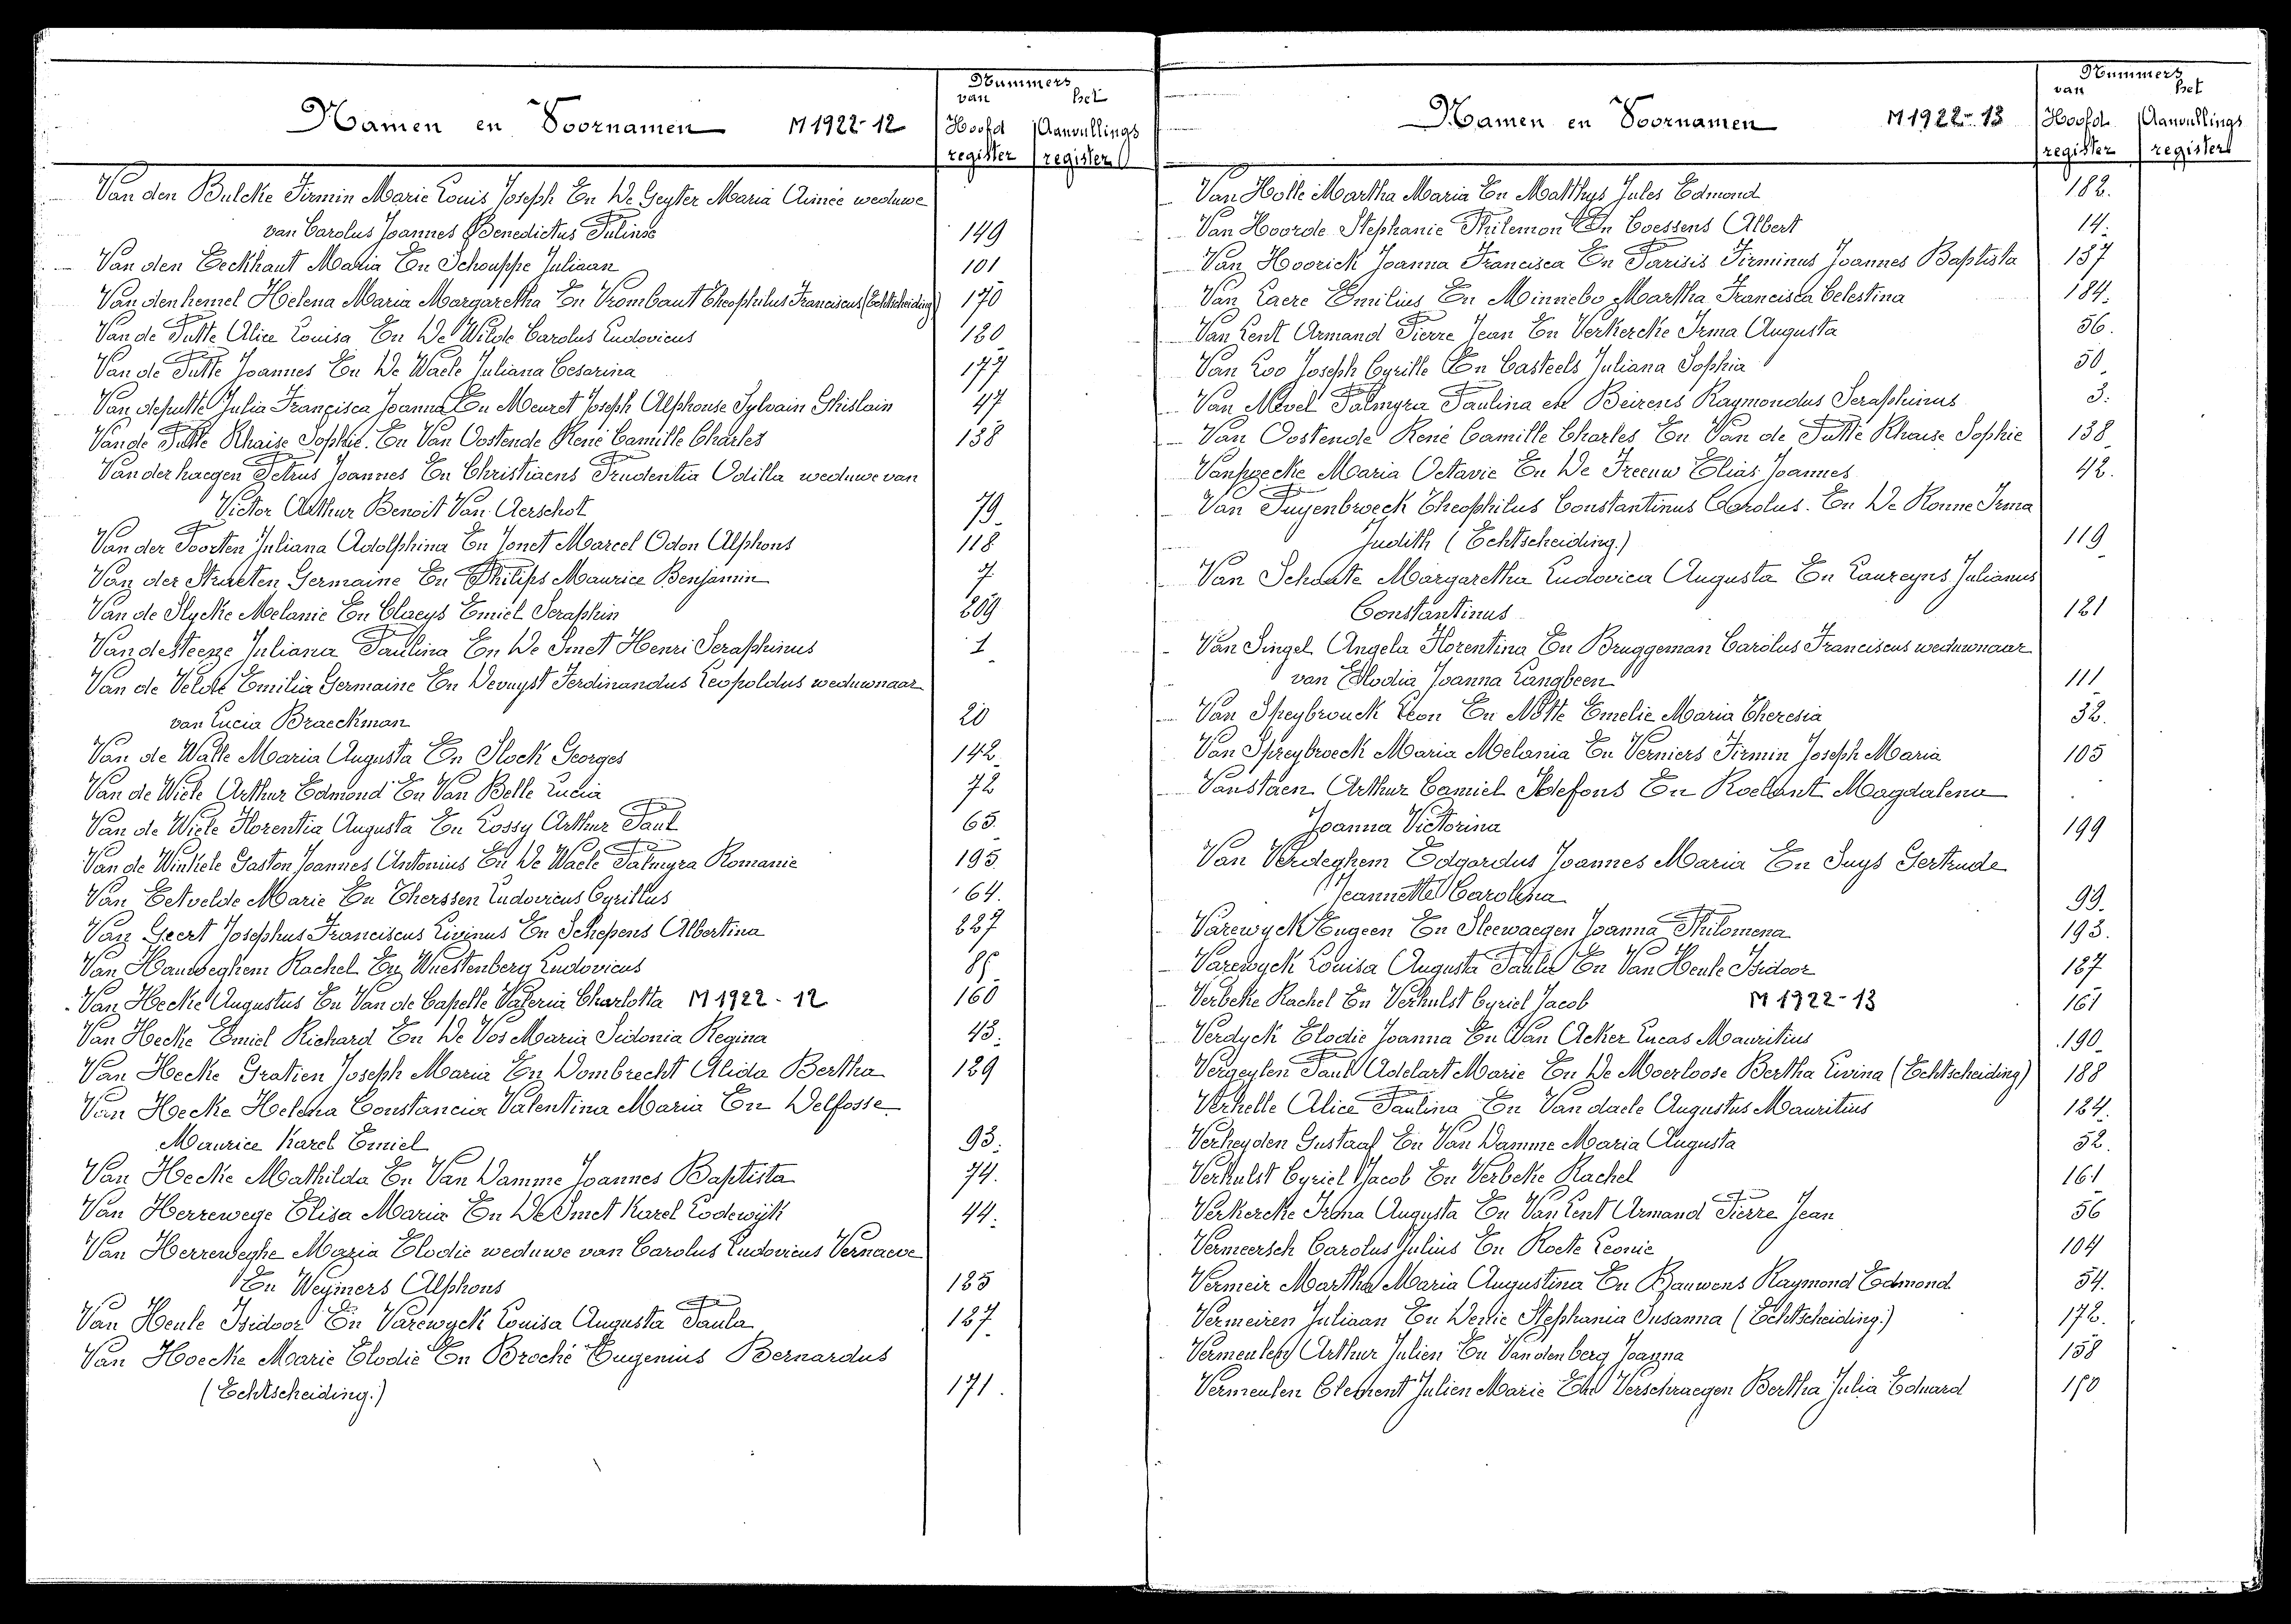 Nummers
van het
Namen en Voornamen M 1922-12 Hoofd Aanvullings
register register
Van den Bulcke Firmin Marie Louis Joseph En De Geyter Maria Aimée weduwe
van Carolus Joannes Benedictus 149
Van den Eeckhaut Maria En Schouppe Juliaan 101
Van den hemel Helena Maria Margaretha En Vrombaut Theophilus Franciscus (Echtscheiding) 170
Van de Putte Alice Louisa En De Wilde Carolus Ludovicus 180
Van de Putte Joannes En De Waele Juliana Cesarina 177
Van deputte Julia Francisca Joanna En Meuret Joseph Alphonse Sylvain Ghislain 47
Van de Putte Rhaise Sophie. En Van Oostende René Camille Charles 138
Van der haegen Petrus Joannes En Christiaens Prudentia Odilla weduwe van
Victor Arthur Benoit Van Aerschot 79
Van der Poorten Juliana Adolphina En Jonet Marcel Odon Alphons 118
Van der Straeten Germaine En Philips Maurice Benjamin 7
Van de Slycke Melanie En Claeys Emiel Seraphin 209
Van de Steene Juliana Paulina En De Smet Henri Seraphinus 1
Van de Velde Emilia Germaine En Devuyst Ferdinandus Leopoldus weduwnaar
van Lucia Braeckman 20
Van de Walle Maria Augusta En Slock Georges 142
Van de Wiele Arthur Edmond En Van Belle Lucia 72
Van de Wiele Florentia Augusta En Lossy Arthur Paul 65
Van de Winkele Gaston Joannes Antonius En De Waele Palmyra Romanie 195
Van Eetvelde Marie En Therssen Ludovicus Cyrillus 64
Van Geert Josephus Franciscus Livinus En Schepens Albertina 227
Van Hauweghem Rachel En Wuestenberg Ludovicus 85
Van Hecke Augustus En Van de Capelle Valeria Charlotta M 1922-12 160
Van Hecke Emiel Richard En De Vos Maria Sidonia Regina 43
Van Hecke Gratien Joseph Maria En Dombrecht Alida Bertha 129
Van Hecke Helena Constancia Valentina Maria En Delfosse
Maurice Karel Emiel 93
Van Hecke Mathilda En Van Damme Joannes Baptista 74.
Van Herrewege Elisa Maria En De Smet Karel Lodewijk 44.
Van Herreweghe Maria Elodie weduwe van Carolus Ludovicus Vernaeve
En Weymers Alphons 185
Van Heule Isidoor En Varewyck Louisa Augusta Paula 127
Van Hoecke Marie Elodie En Broché Eugenius Bernardus
(Echtscheiding.) 171.
Nummers
van het
Namen en Voornamen M 1922-13 Hoofd Aanvullings
register register
Van Holle Martha Maria En Matthys Jules Edmond 182.
Van Hoorde Stephanie Philemon En Coessens Albert 14.
Van Hoorick Joanna Francisca En Parisis Firminus Joannes Baptista 157
Van Laere Emilius En Minnebo Martha Francisca Celestina 184.
Van Lent Armand Pierre Jean En Verkercke Irma Augusta 56.
Van Loo Joseph Cyrille En Casteels Juliana Sophia 50
Van Mevel Palmyra Paulina en Beirens Raymondus Seraphinus 3.
Van Oostende René Camille Charles En Van de Putte Rhaise Sophie 138
Vanpoecke Maria Octavie En De Freeuw Elias Joannes 42.
Van Puyenbroeck Theophilus Constantinus Carolus. En De Ronne Irma
Judith (Echtscheiding.) 119
Van Schoute Margaretha Ludovica Augusta En Laureyns Julianus
Constantinus 121
Van Singel Angela Florentina En Bruggeman Carolus Franciscus weduwnaar
van Elodia Joanna Langbeen 111
Van Speybrouck Leon En Notte Emelie Maria Theresia 32.
Van Spreybroeck Maria Melania En Verniers Firmin Joseph Maria 105
Vanstaen Arthur Camiel Ildefons En Roelant Magdalena
Joanna Victorina 199
Van Verdeghem Edgardus Joannes Maria En Suys Gertrude
Jeannette Carolina 99.
Varewyck Eugeen En Sleewaegen Joanna Philomena 193.
Varewyck Louisa Augusta Paula En Van Heule Isidoor 127
Verbeke Rachel En Verhulst Cyriel Jacob M 1922-13 161
Verdyck Elodie Joanna En Van Acker Lucas Mauritius 190
Vergeylen Paul Adelart Marie En De Moerloose Bertha Livina (Echtscheiding) 188
Verhelle Alice Paulina En Van daele Augustus Mauritius 124.
Verheyden Gustaaf En Van Damme Maria Augusta 52.
Verhulst Cyriel Jacob En Verbeke Rachel 161
Verkercke Irma Augusta En Van Lent Armand Pierre Jean 56
Vermeersch Carolus Julius En Roete Leonie 104
Vermeir Martha Maria Augustina En Bauwens Raymond Edmond 54.
Vermeiren Juliaan En Stephania Susanna (Echtscheiding.) 172.
Vermeulen Arthur Julien En Vandenberg Joanna 158
Vermeulen Clement Julien Marie En Verschraegen Bertha Julia Eduard 150